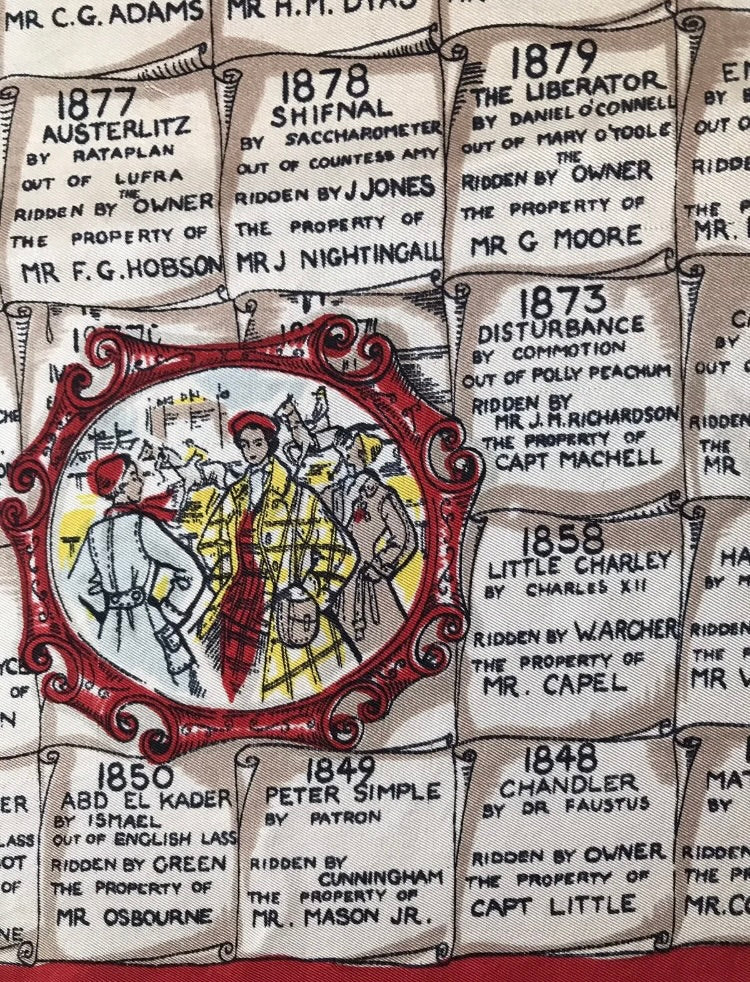 MR C.G. ADAMS
MR H.M. DYAS
1877
AUSTERLITZ
BY RATAPLAN
OUT OF LUFRA
RIDDEN BY THE OWNER
THE PROPERTY OF
MR F.G. HOBSON
1878
SHIFNAL
BY SACCHAROMETER
OUT OF COUNTESS AMY
RIDDEN BY J JONES
THE PROPERTY OF
MR J NIGHTINGALL
1879
THE LIBERATOR
BY DANIEL O'CONNELL
OUT OF MARY O'TOOLE
RIDDEN BY THE OWNER
THE PROPERTY OF
MR G MOORE
BY
OUT O
RIDDE
THE P
MR.
1873
DISTURBANCE
BY COMMOTION
OUT OF POLLY PEACHUM
RIDDEN BY
MR J.M. RICHARDSON
THE PROPERTY OF
CAPT MACHELL
CA
BY
OUT
RIDDEN
THE
MR
1858
LITTLE CHARLEY
BY CHARLES XII
RIDDEN BY W.ARCHER
THE PROPERTY OF
MR. CAPEL
HA
BY
RIDDEN
THE P
MR
OF
N
ER
LASS
OT
OF
NE
1850
ABD EL KADER
BY ISMAEL
OUT OF ENGLISH LASS
RIDDEN BY GREEN
THE PROPERTY OF
MR OSBOURNE
1849
PETER SIMPLE
BY PATRON
RIDDEN BY
CUNNINGHAM
THE PROPERTY OF
MR. MASON JR.
1848
CHANDLER
BY DR FAUSTUS
RIDDEN BY OWNER
THE PROPERTY OF
CAPT LITTLE
MA
BY
RIDDEN
THE PR
MR.CO